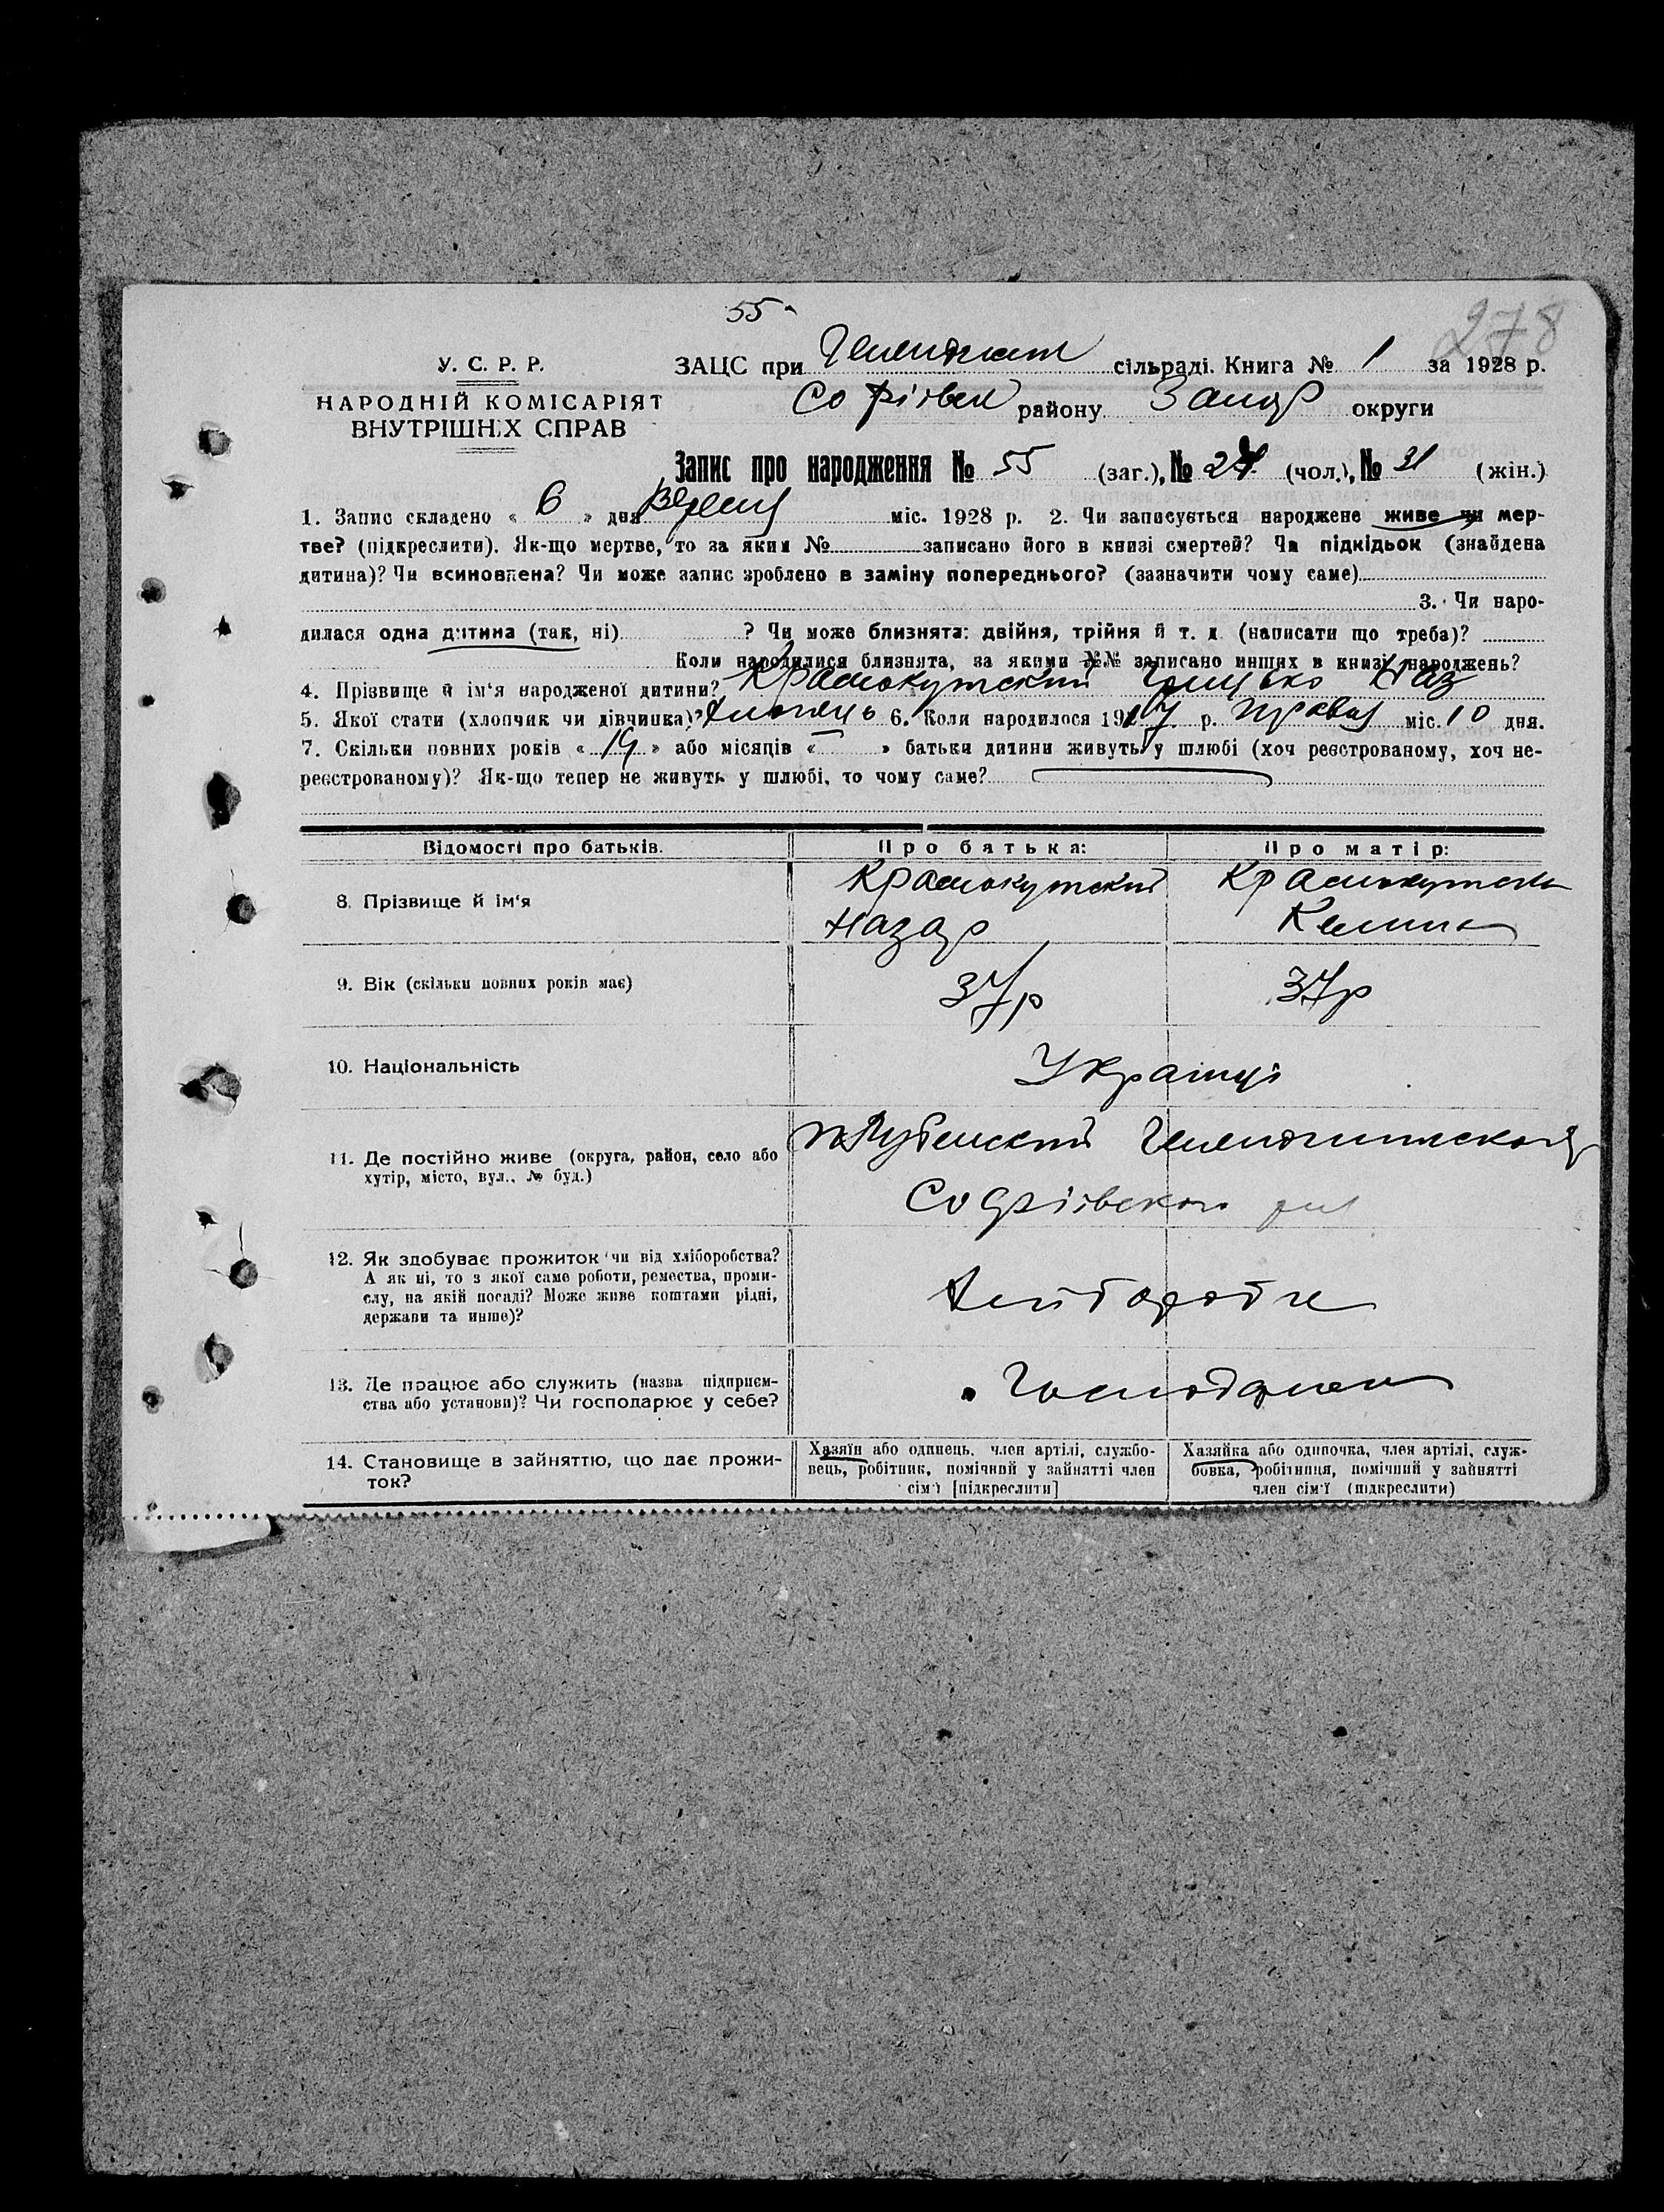 55
278
У. С. Р. Р.
ЗАЦС при сільраді. Книга № 1 за 1928 р.
НАРОДНІЙ КОМІСАРІЯТ
Софіївск району Запор округи
ВНУТРІШНІХ СПРАВ
Запис про народження № 55 (заг.), № 24 (чол.), № 31 (жін.)
1. Запис складено « 6 » дня Вересня міс. 1928 р. 2. Чи записується народжене живе чи мер-
тве? (підкреслити). Як-що мертве, то за яким № записано його в книзі смертей? Чи підкідьок (знайдена
дитина)? Чи всиновлена? Чи може запис зроблено в заміну попереднього? (зазначити чому саме)
3. Чи наро-
дилася одна дитина (так, ні) ? Чи може близнята: двійня, трійня й т. д. (написати що треба)?
Коли народилися близнята, за якими №№ записано инших в книзі народжень?
4. Прізвище й ім'я народженої дитини? Краснокутский Грицько Наз
5. Якої стати (хлопчик чи дівчинка)? Хлопець 6. Коли народилося 1917 р. Травня міс. 10 дня.
7. Скільки повних років « 19 » або місяців « – » батьки дитини живуть у шлюбі (хоч реєстрованому, хоч не-
реєстрованому)? Як-що тепер не живуть у шлюбі, то чому саме?
Відомості про батьків. Про батька: Про матір:
8. Прізвище й ім'я Краснокутский Краснокутска
Назар Келина
9. Вік (скільки повних років має) 37р 37р
10. Національність Українці
11. Де постійно живе (округа, район, село або
хутір, місто, вул., № буд.)
Софіївского
12. Як здобуває прожиток чи від хліборобства?
А як ні, то з якої саме роботи, ремества, проми-
слу, на якій посаді? Може живе коштами рідні,
держави та инше)?
Хліборобзе
13. Де працює або служить (назва підприєм-
ства або установи)? Чи господарює у себе?
14. Становище в зайняттю, що дає прожи-
ток?
Хазяїн або одинець, член артілі, службо-
вець, робітник, помічний у зайнятті член
сім'ї [підкреслити]
Хазяйка або одиночка, член артілі, служ-
бовка, робітниця, помічний у зайнятті
член сім'ї (підкреслити)